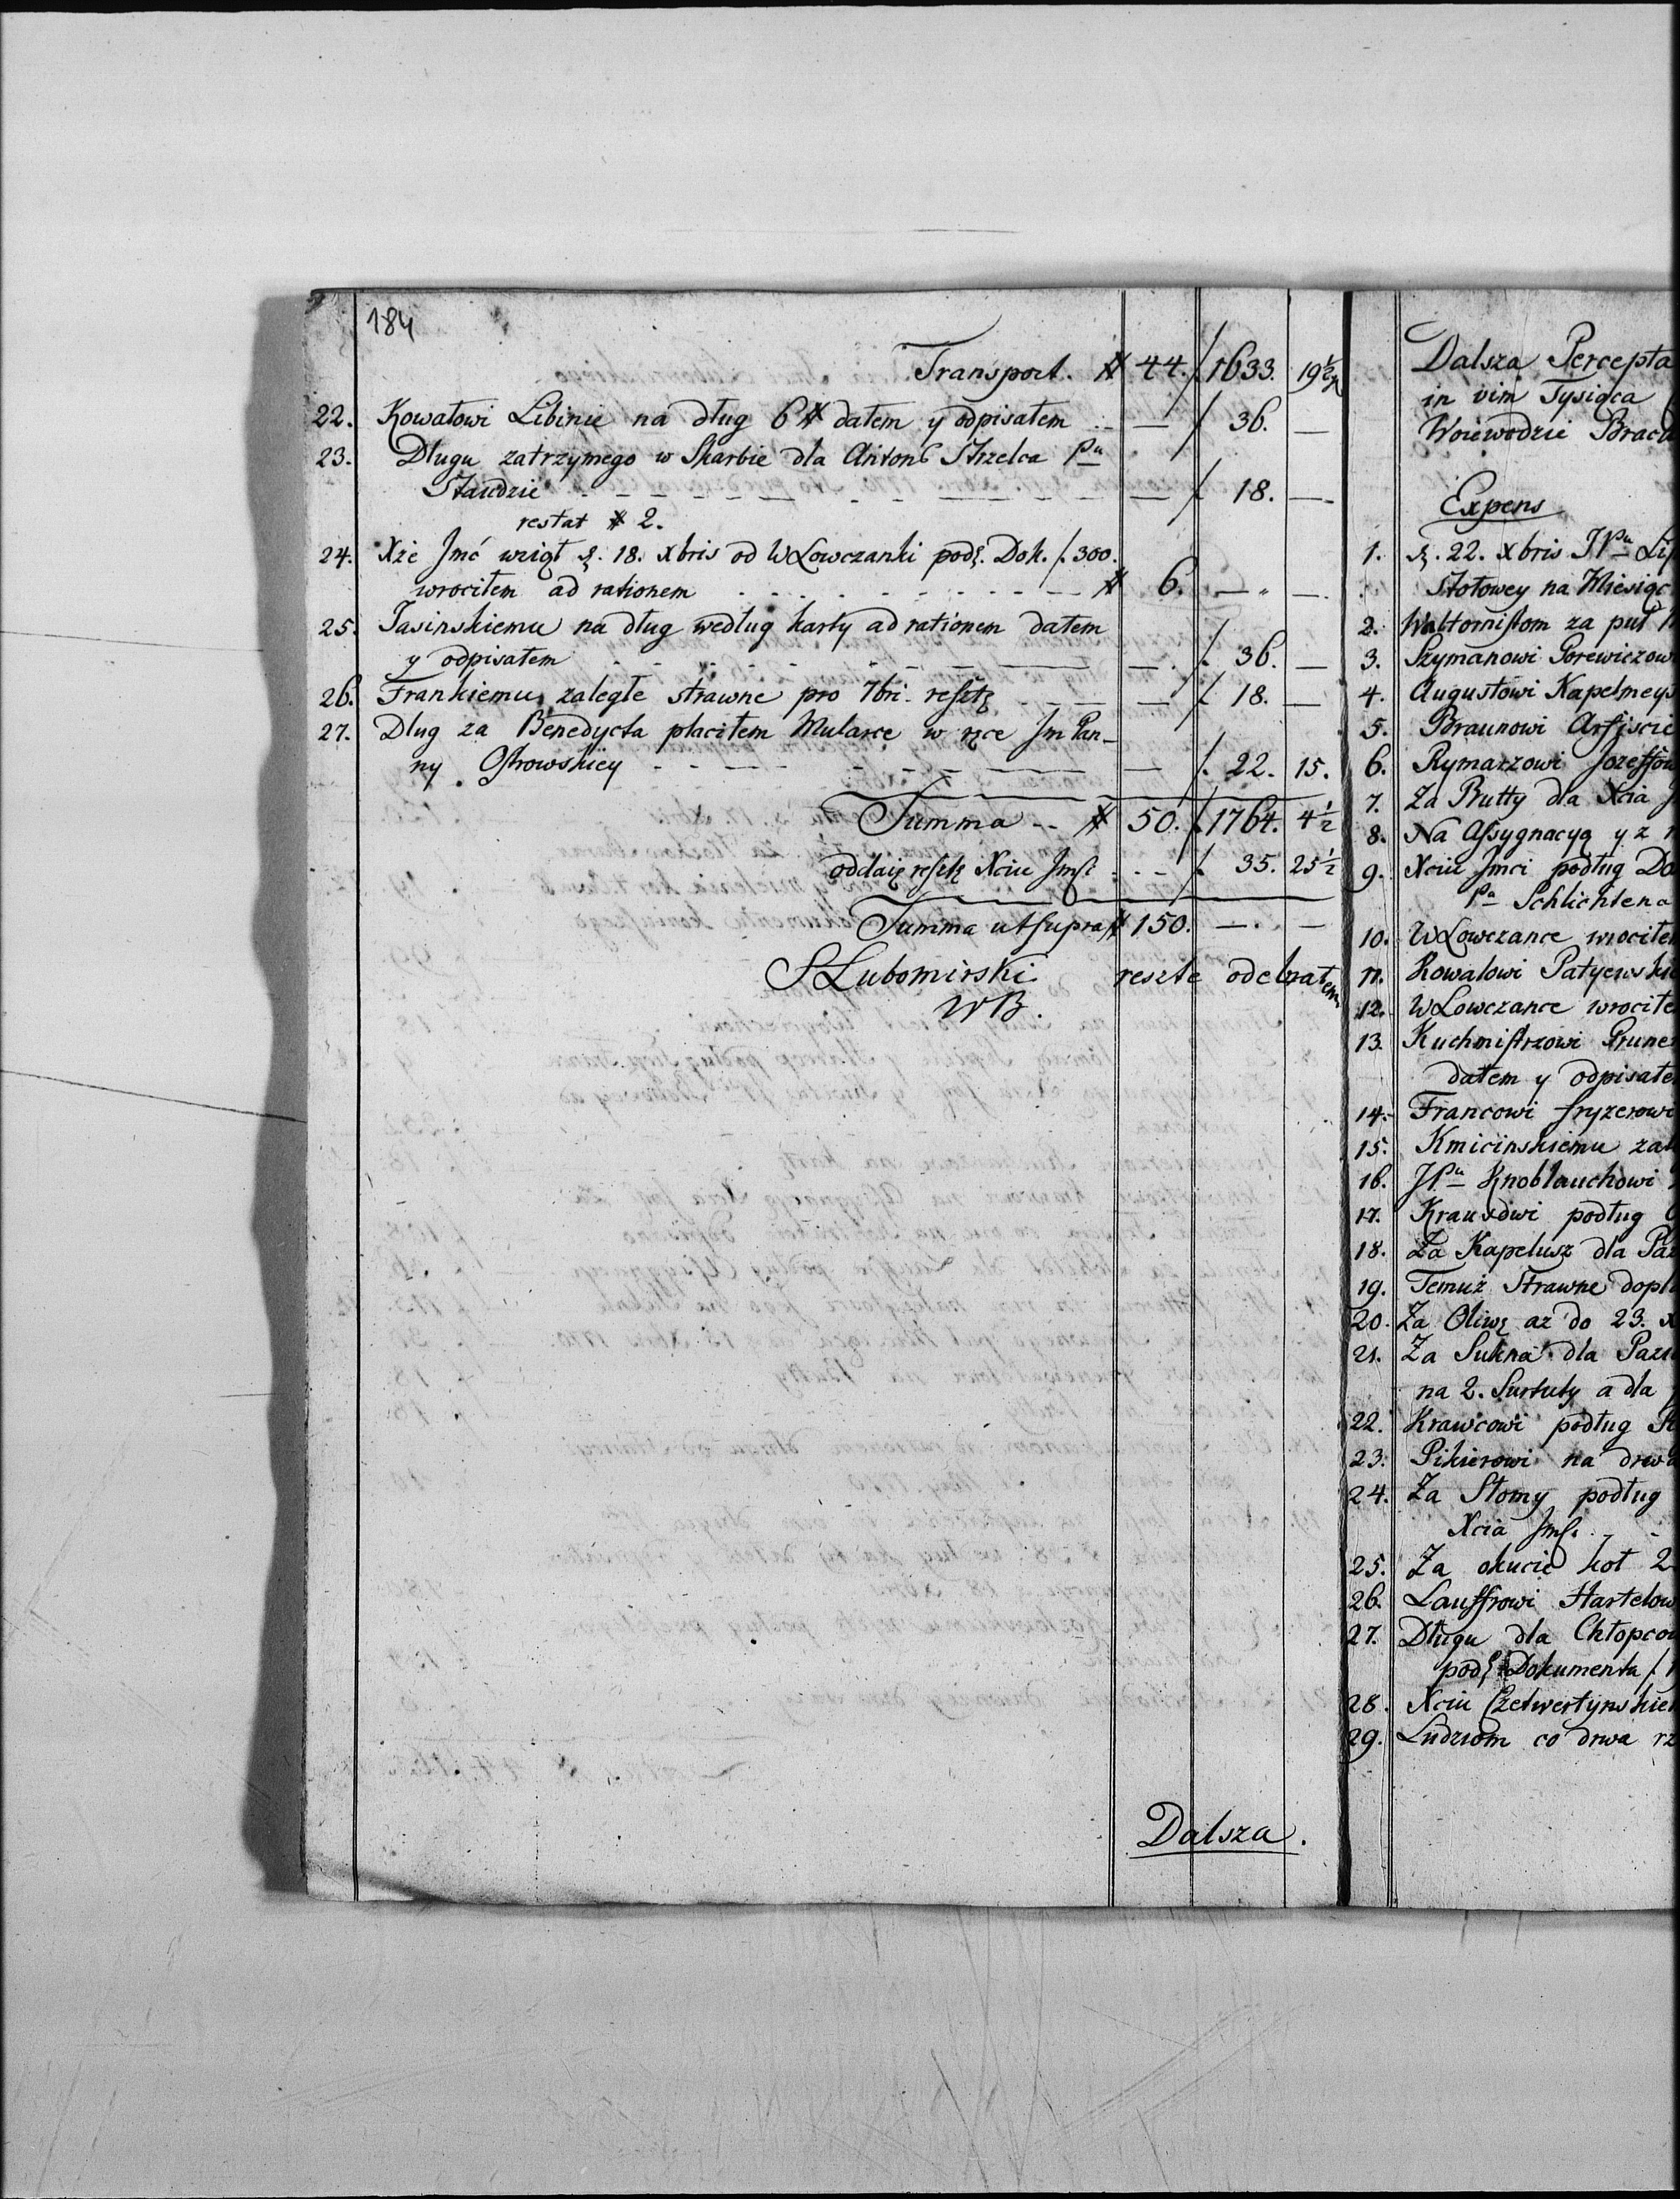 184
Transport. # 44. f. 1633. 19½
22. Kowalowi Libinie na dług 6 # dałem y odpisałem — f 36. —
23. Długu zatrzymego w Skarbie dla Anton Strzelca Pu
Staudzie — f 18. —
restat # 2.
24. Xże Jmć wziął d. 18. xbris od WLowczanki podł. Dok. f. 300.
wrociłem ad rationem # 6. — —
25. Jasinskiemu na dług według karty ad rationem dałem
y odpisałem — f. 36. —
26. Frankiemu zaległe strawne pro 7bri resztę — f 18. —
27. Dlug za Benedycta płaciłem Mularce w ręce Jm Pan-
ny Ostrowskiey — f. 22. 15.
Summa # 50. f. 1764. 4½
oddaię resztę Xciu Jmści f. 35. 25½
Summa ut supra # 150. — —
SLubomirski reszte odebrałem
WB.
Dalsza.
Dalsza Percepta
in vim Tysiąca
Woiewodzie Bracł
Expens
1. d. 22. xbris JPu
Stołowey na Miesiąc
2. Waltornistom za puł
3. Szymanowi Porewiczow
4. Augustowi Kapelmeys
5. Braunowi Arfiscie
6. Rymarzowi Jozeffow
7. Za Brutty dla Xcia J
8. Na Assygnacyą y z
9. Xciu Jmci podług Do
Pa Schlichtena
10. WLowczance wrociłe
11. Kowalowi Patyewski
12. WLowczance wrociłe
13. Kuchmistrzowi Grune
dałem y odpisałe
14. Francowi fryzerowi
15. Kmicinskiemu za
16. JPu Knoblauchowi
17. Krausowi podług
18. Za Kapelusz dla Paz
19. Temuż Strawne dopł
20. Za Oliwę aż do 23. x
21. Za Sukna dla Pazi
na 2. Surtuty a dla
22. Krawcowi podług
23. Pikierowi na drwa
24. Za Słomy podług
Xcia Jmści
25. Za okucie koł 2
26. Lauffrowi Hartelow
27. Długu dla Chłopcow
podł. Dokumenta f.
28. Xciu Czetwertynskie
29. Ludziom co drwa rz